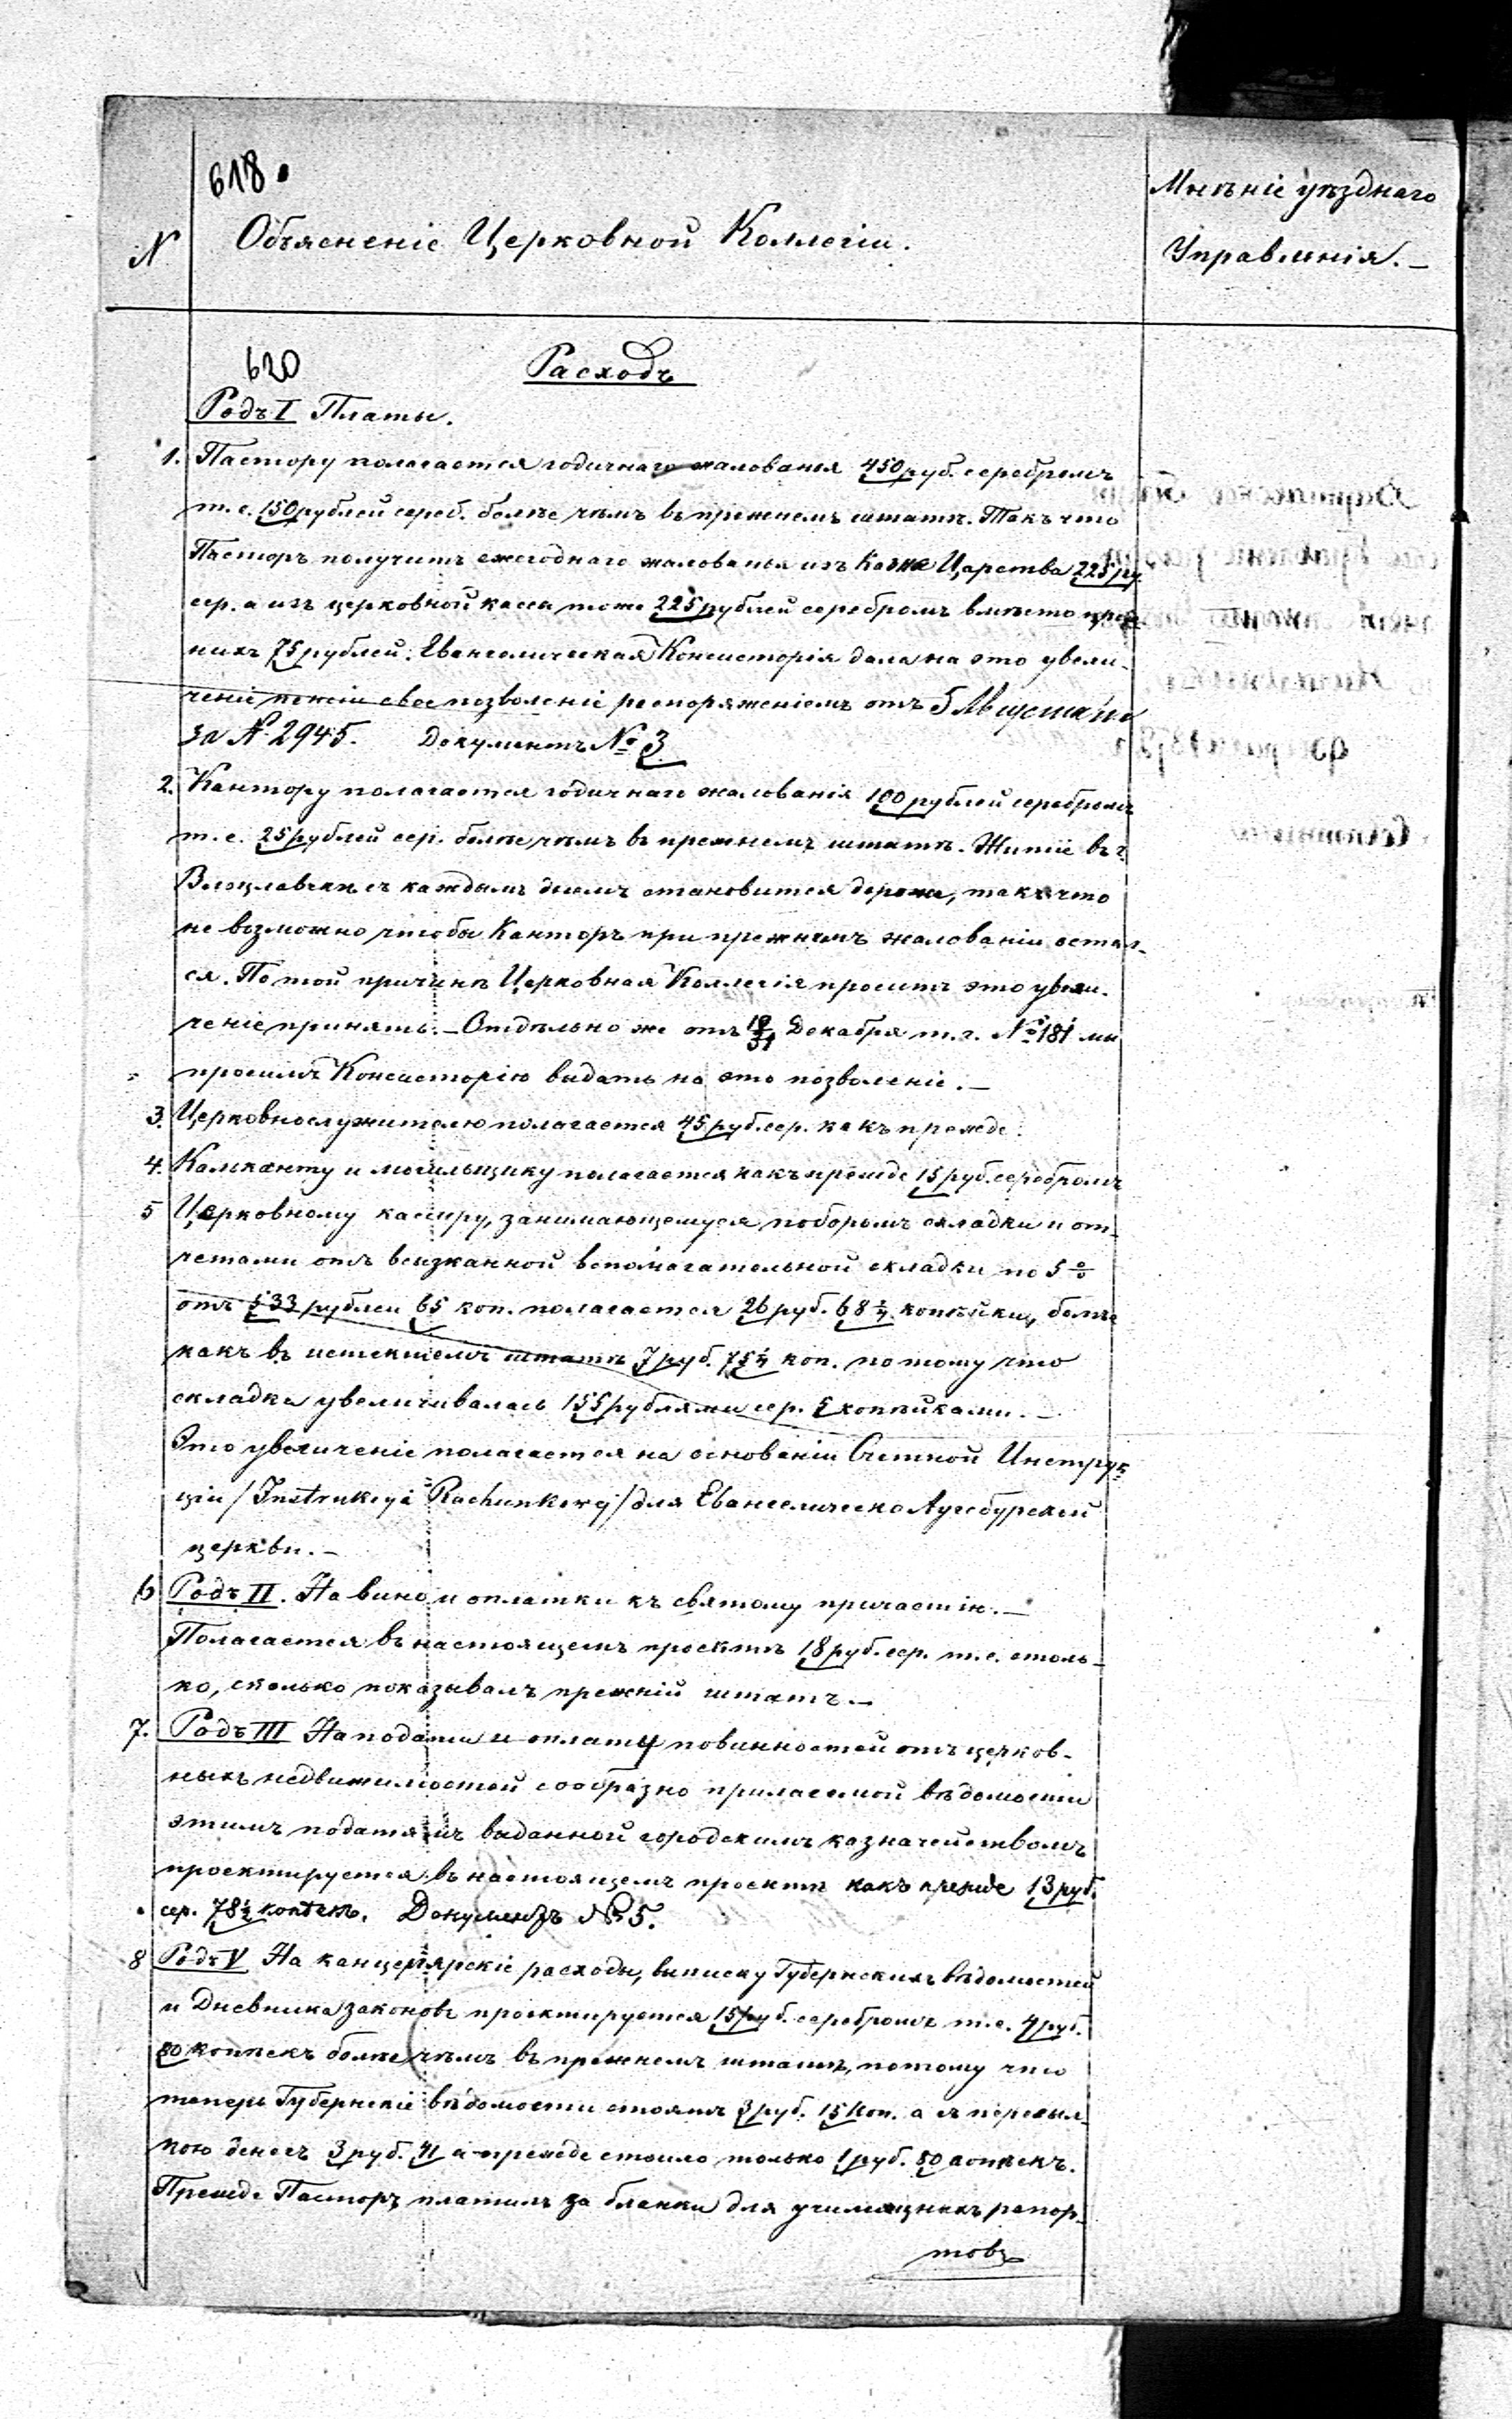 618.
Мнѣніе уѣзднаго
N Объясненіе Церковной Коллегіи.
Управленія. —
620 Расходъ
Родъ I Платы.
1. Пастору полагается годичнаго жалованья 450 руб. серебромъ
т. е. 150 рублей сереб. болѣе чѣмъ въ прежнемъ штатѣ. Такъ что
Пасторъ получитъ ежегоднаго жалованья изъ Казны Царства 225 ру
сер. а изъ церковной кассы тоже 225 рублей серебромъ вмѣсто преж
нихъ 75 рублей. Евангелическая Консисторія дала на это увели-
ченіе свое позволеніе распоряженіемъ отъ 5 Августа
за N 2945. Документъ № 3
2. Кантору полагается годичнаго жалованія 100 рублей серебромъ
т. е. 25 рублей сер. болѣе чѣмъ въ прежнемъ штатѣ. Житіе въ г.
Влоцлавскѣ съ каждымъ днемъ становится дороже, такъ что
не возможно чтобы Канторъ при прежнемъ жалованіи остал-
ся. По той причинѣ Церковная Коллегія проситъ это увели-
ченіе принять. — Отдѣльно же отъ 19/31 Декабря т. г. № 181 мы
просили Консисторію выдать на это позволеніе. —
3. Церковнослужителю полагается 45 руб. сер. какъ прежде.
4. Калканту и могильщику полагается какъ прежде 15 руб. серебромъ
5 Церковному кассиру, занимающемуся поборомъ складки и от-
четами отъ взысканной вспомагательной складки по 5 %
отъ 533 рублей 65 коп. полагается 26 руб. 68 1/4 копѣйки, болѣе
какъ въ истекшемъ штатѣ 7 руб. 75 1/4 коп. потому что
складка увеличивалась 155 рублями сер. 5 копѣйками. —
Это увеличеніе полагается на основаніи Счетной Инструк
ціи / Instrukcya Rachunkowej / для Евангелическо Аугсбурской
церкви. —
6 Родъ II. На вино и оплатки къ святому причастію. —
Полагается въ настоящемъ проектѣ 18 руб. сер. т. е. столь-
ко, сколько показывалъ прежній штатъ. —
7. Родъ III На подати и оплату повинностей отъ церков-
ныхъ недвижимостей сообразно прилагаемой вѣдомости
этимъ податямъ выданной городскимъ казначействомъ
проектируется въ настоящемъ проектѣ какъ прежде 13 руб.
сер. 78 1/2 копѣекъ. Документъ № 5.
8 Родъ V На канцелярскіе расходы, выписку Губернскихъ вѣдомостей
и Дневника законовъ проектируется 15 руб. серебромъ т. е. 4 руб.
80 копѣекъ болѣе чѣмъ въ прежнемъ штатѣ, потому что
теперь Губернскіе вѣдомости стоятъ 3 руб. 15 коп. а съ пересыл-
кою денегъ 3 руб. 41 а прежде стоило только 1 руб. 80 копѣекъ.
Прежде Пасторъ платилъ за бланки для училищныхъ рапор-
товъ